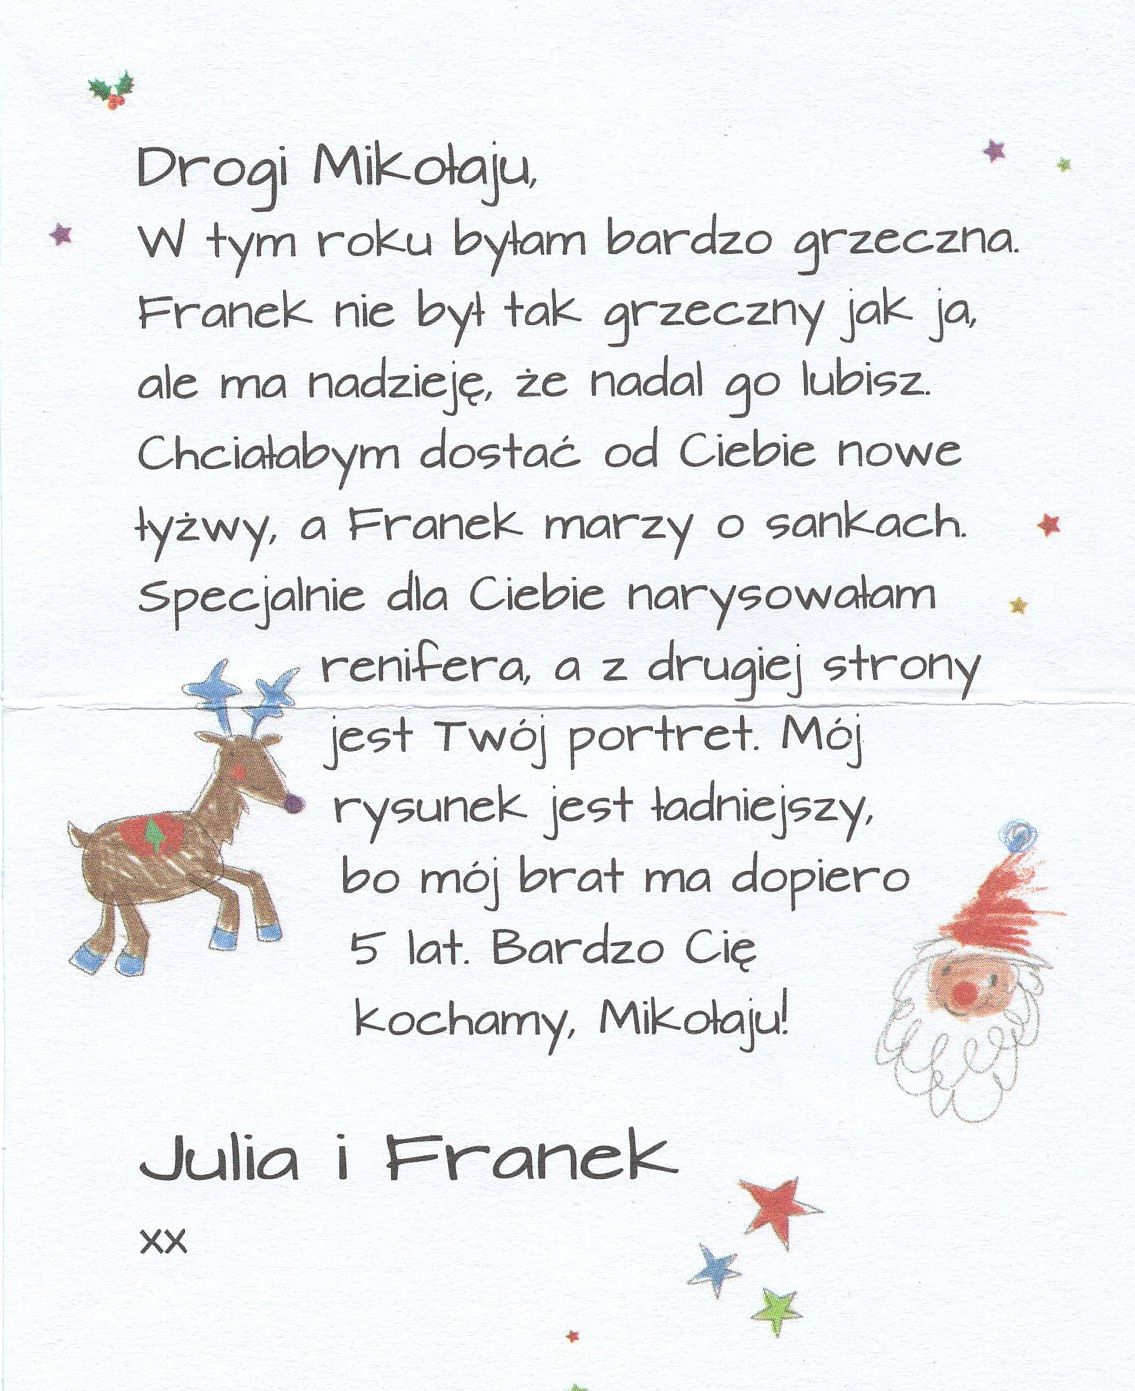 Drogi Mikołaju,
W tym roku byłam bardzo grzeczna.
Franek nie był tak grzeczny jak ja,
ale ma nadzieję, że nadal go lubisz.
Chciałabym dostać od Ciebie nowe
łyżwy, a Franek marzy o sankach.
Specjalnie dla Ciebie narysowałam
renifera, a z drugiej strony
jest Twój portret. Mój
rysunek jest ładniejszy,
bo mój brat ma dopiero
5 lat. Bardzo Cię
kochamy, Mikołaju!
Julia i Franek
xx